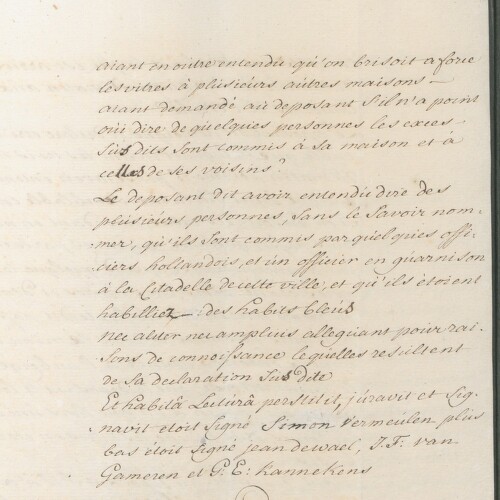 aiant en outre entendu qu'on brisoit a force
les vitres à plusieurs autres maisons —
aiant demandé au deposant s'il n'a point
oui dire de quelques personnes les exces
Susdits sont commis à sa maison et à
celles de ses voisins?
Le deposant dit avoir entendu dire des
plusieurs personnes, sans le Savoir nom-
mer, qu'ils sont commis par quelques offi-
ciers hollandois, et un officier en guarnison
à la Citadelle de cette ville, et qu'ils étoient
habilliez — des habits bleus
nec aliter nec amplius alleguant pour rai-
sons de connoissance lequelles resultent
de sa declaration Susdite
Et habitâ Lecturâ perstitit, juravit et Sig-
navit étoit Signé Simon Vermeulen plus
bas étoit Signé jean dewael, J. F. van
Gameren et G. E. Kannekens